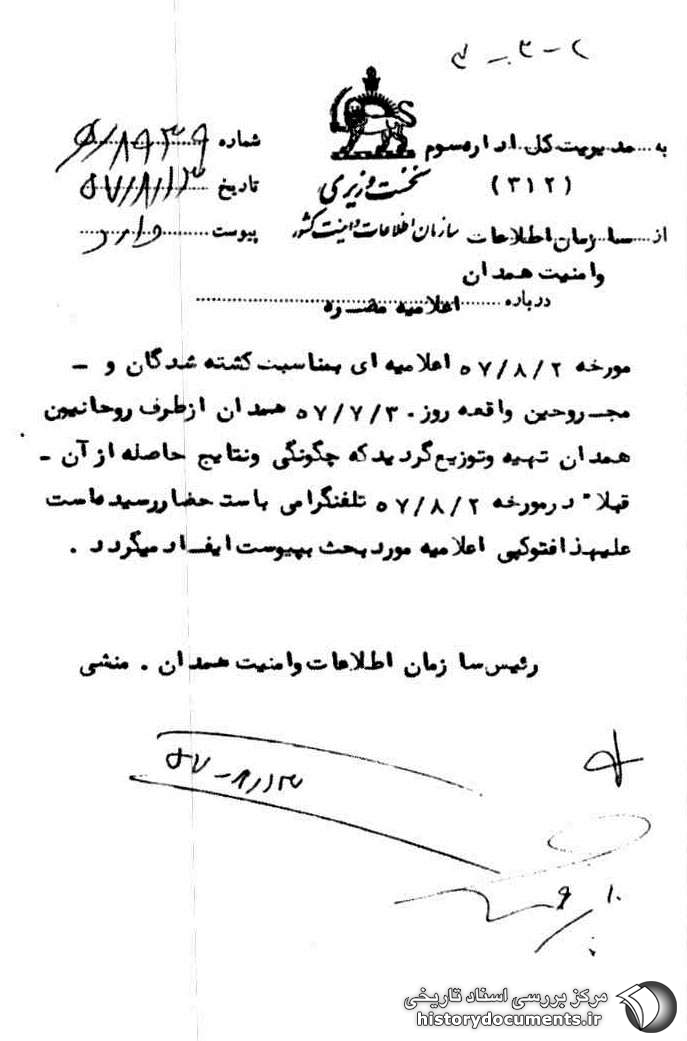 ۲-۳-۳
به مدیریت کل اداره سوم
(۳۱۲)
از سازمان اطلاعات
وامنیت همدان
نخست وزیری
سازمان اطلاعات و امنیت کشور
شماره
تاریخ ۵۷/۸/۱۳
پیوست دارد
درباره اعلامیه مضره
مورخه ۵۷/۸/۲ اعلامیه ای بمناسبت کشته شدگان و -
مجروحین واقعه روز ۵۷/۷/۳۰ همدان ازطرف روحانیون
همدان تهیه وتوزیع گردید که چگونگی ونتایج حاصله از آن -
قبلا" درمورخه ۵۷/۸/۲ تلفنگرامی باستحضاررسیده است
علیهذا فتوکپی اعلامیه مورد بحث بپیوست ایفاد میگردد .
رئیس سازمان اطلاعات وامنیت همدان . منشی
۵۷-۸/۱۳
مرکز بررسی اسناد تاریخی
historydocuments.ir